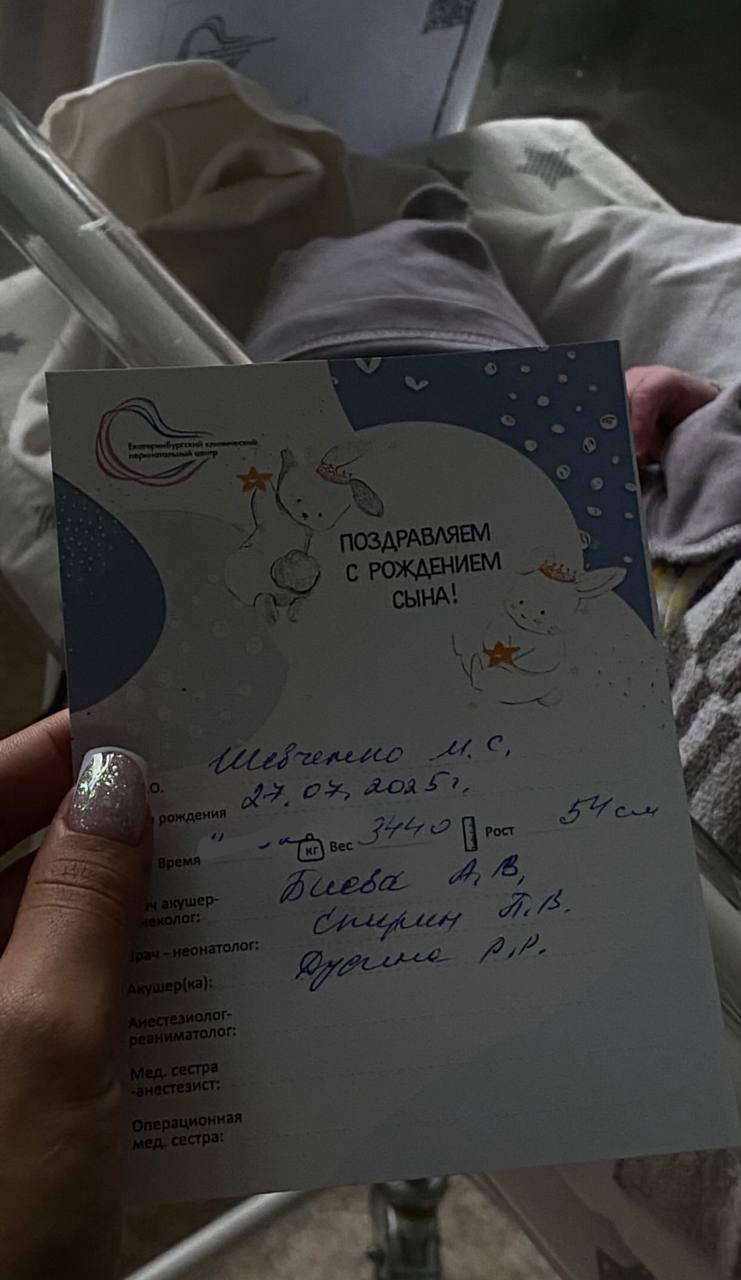 Екатеринбургский клинический
перинатальный центр
ПОЗДРАВЛЯЕМ
С РОЖДЕНИЕМ
СЫНА!
О. Шевченко М. С.
рождения 27.07.2025г.
Время " " кг Вес 3440 Рост 54 см
ач акушер-
неколог: Биева А.В.
рач - неонатолог: Спирин П.В.
Акушер(ка): Р.Р.
Анестезиолог-
реаниматолог:
Мед. сестра
-анестезист:
Операционная
мед. сестра: